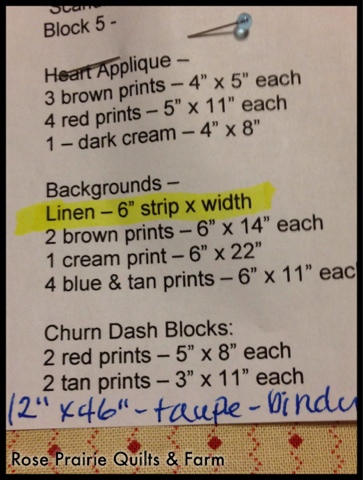 Block 5 -
Heart Applique –
3 brown prints – 4” x 5” each
4 red prints – 5” x 11” each
1 – dark cream – 4” x 8”
Backgrounds –
Linen – 6” strip x width
2 brown prints – 6” x 14” each
1 cream print – 6” x 22”
4 blue & tan prints – 6” x 11” eac
Churn Dash Blocks:
2 red prints – 5” x 8” each
2 tan prints – 3” x 11” each
12" x 46" - taupe -
Rose Prairie Quilts & Farm